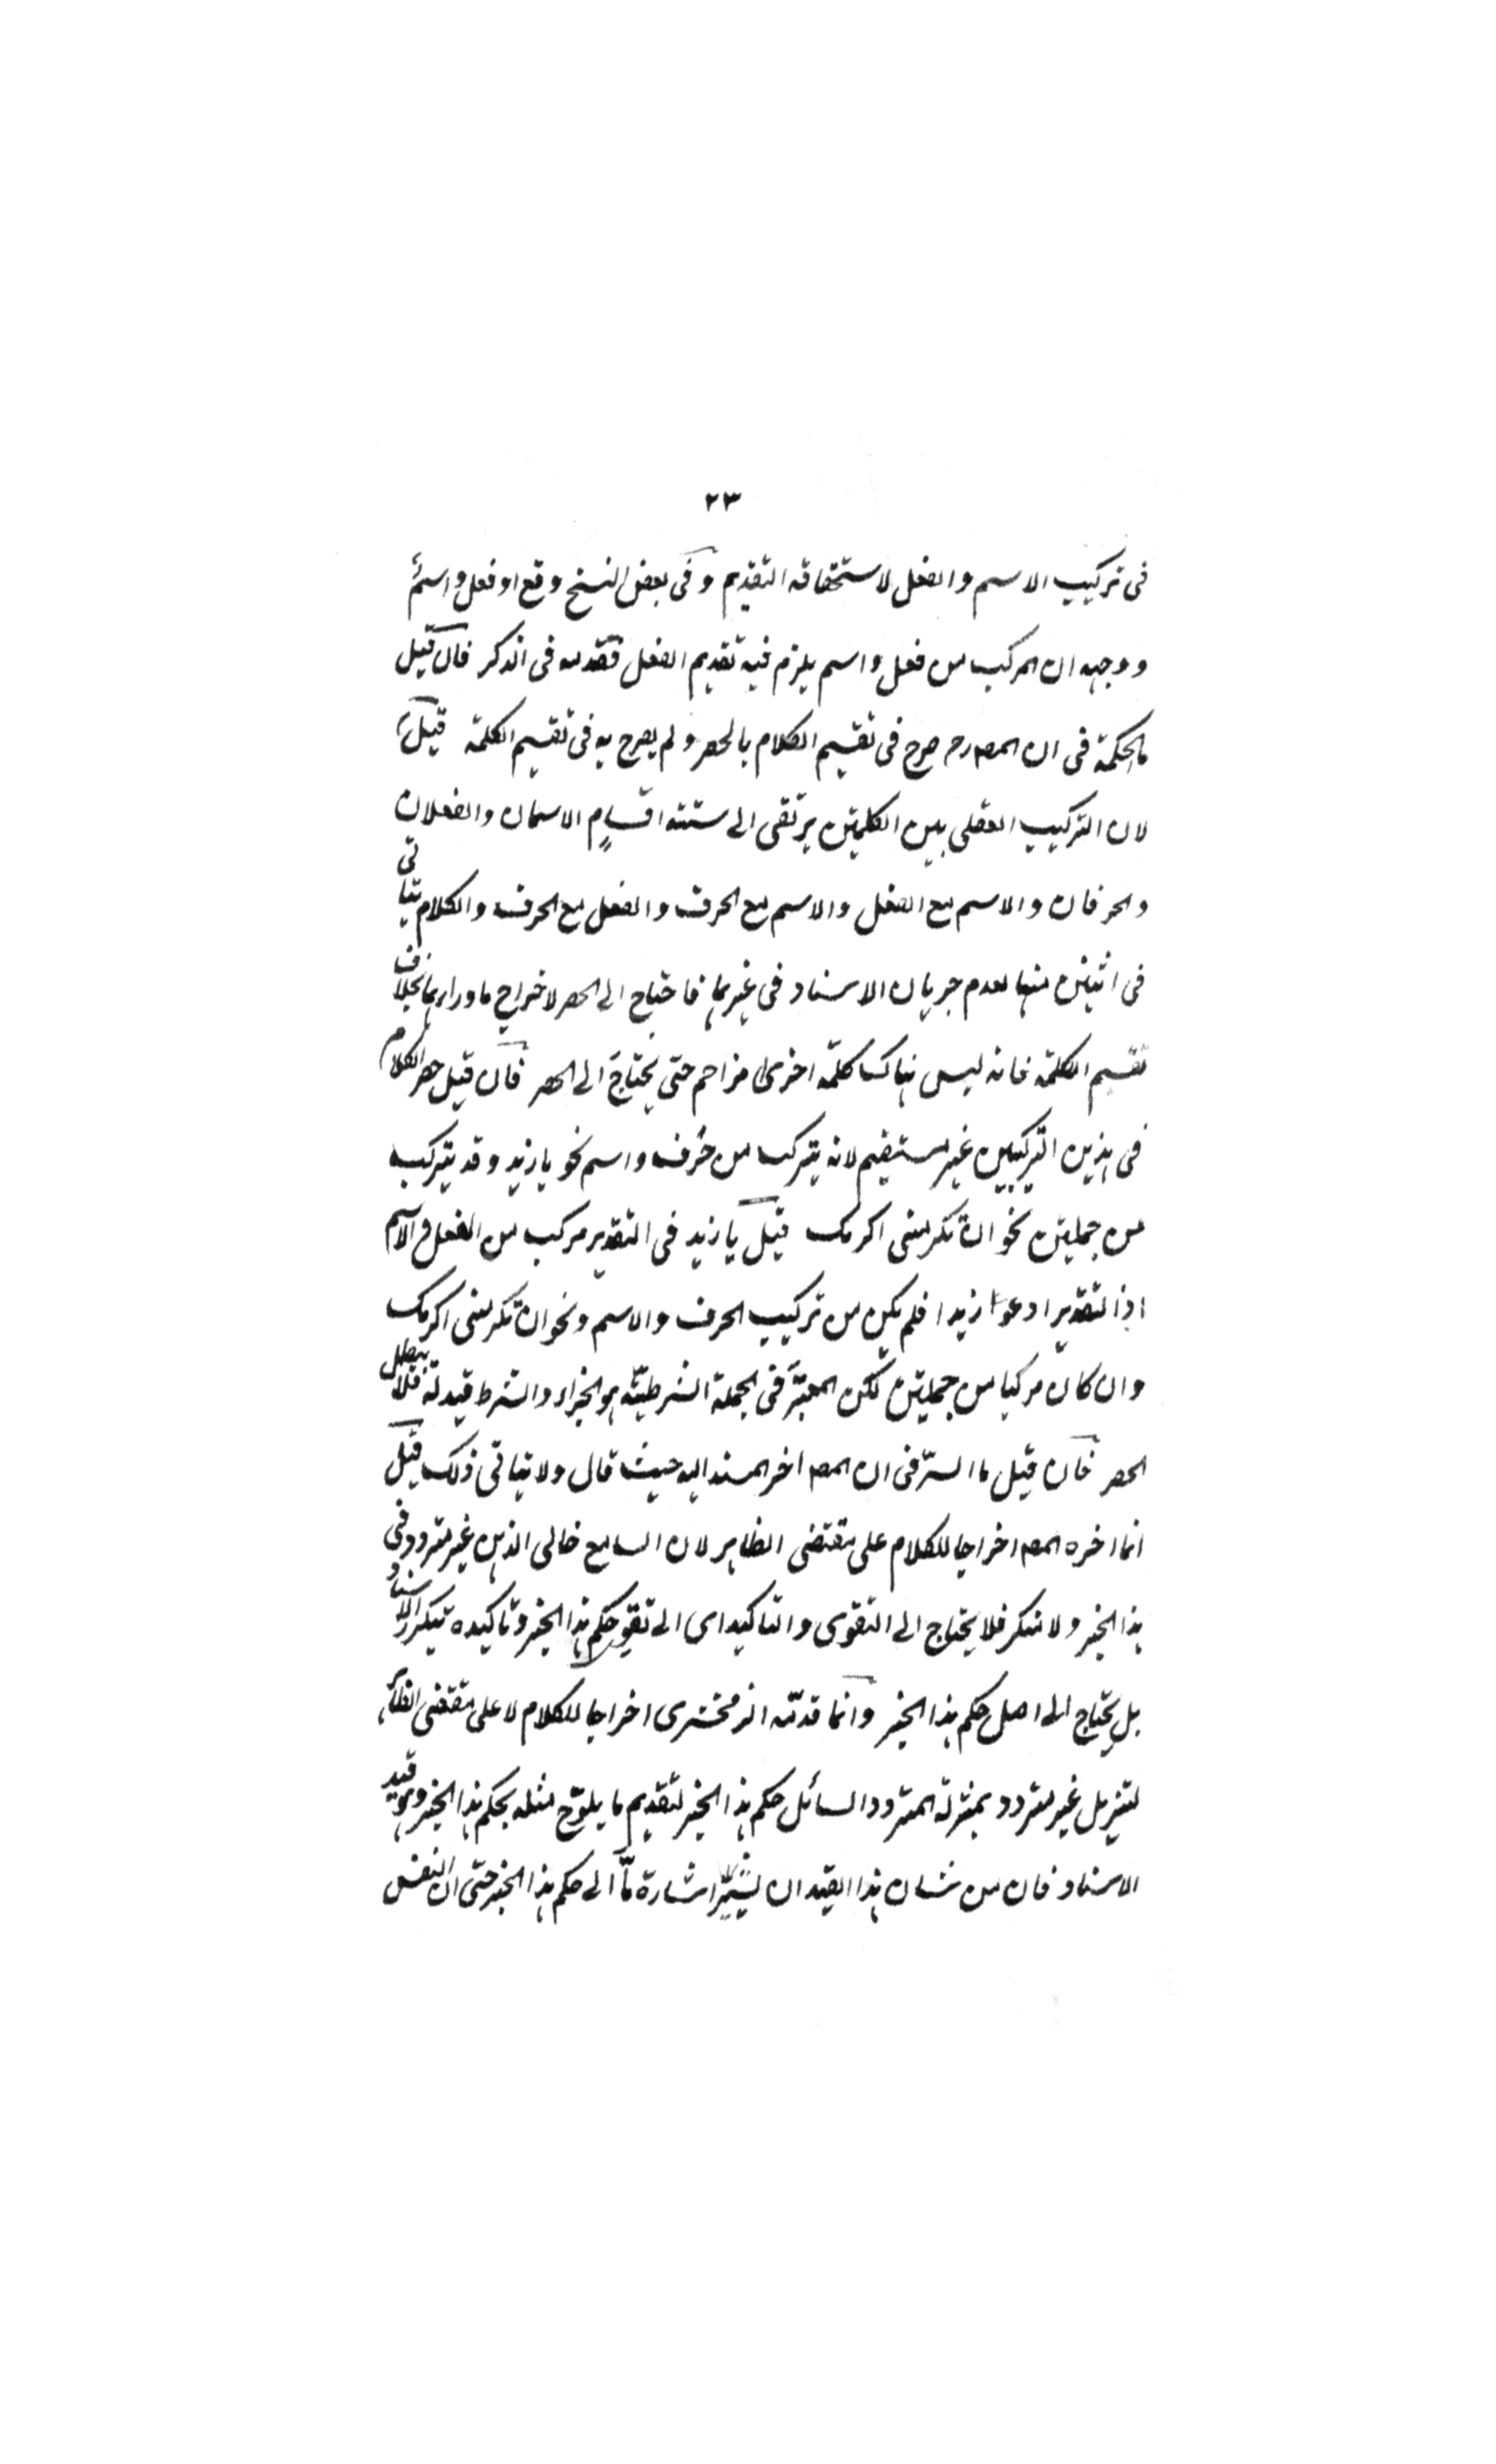 ٢٣
فى تركيب الاسم والفعل لاستحقاقه التقديم وفى بعض النسخ وقع او فعل واسم
ووجهه ان المركب من فعل واسم يلزم فيه تقديم الفعل فقدمه فى الذكر فان قيل
ما الحكمة فى ان المصـ رحـ صرح فى تقسيم الكلام بالحصر ولم يصرح به فى تقسيم الكلمة قيل
لان التركيب العقلى بين الكلمتين يرتقى الى ستة اقسام الاسمان والفعلان
والحرفان والاسم مع الفعل والاسم مع الحرف والفعل مع الحرف والكلام يتاتى
فى اثنين منها لعدم جريان الاسناد فى غيرهما فاحتاج الى الحصر لاخراج ما وراءهما بخلاف
تقسيم الكلمة فانه ليس هناك كلمة اخرى مزاحم حتى يحتاج الى الحصر فان قيل حصر الكلام
فى هذين التركيبين غير مستقيم لانه يتركب من حرف واسم نحو يا زيد وقد يتركب
من جملتين نحو ان تكرمنى اكرمك قيل يا زيد فى التقدير مركب من الفعل والاسم
اذ التقدير ادعوا زيدا فلم يكن من تركيب الحرف والاسم ونحو ان تكرمنى اكرمك
وان كان مركبا من جملتين لكن المعتبر فى الجملة الشرطية هو الجزاء والشرط قيد له فلا يبطل
الحصر فان قيل ما السر فى ان المصـ اخر المسند اليه حيث قال ولا يتاتى ذلك قيل
انما اخره المصـ اخراجا للكلام على مقتضى الظاهر لان السامع خالى الذهن غير متردد فى
هذا الخبر ولا منكر فلا يحتاج الى التقوى والتاكيد اى الى تقوى حكم هذا الخبر وتاكيده بتكرر الاسناد
بل يحتاج الى اصل حكم هذا الخبر وانما قدمه الزمخشرى اخراجا للكلام لا على مقتضى الظاهر
لتنزيل غير متردد بمنزلة المتردد السائل حكم هذا الخبر لتقديم ما يلوح مثله بحكم هذا الخبر وهو قيد
الاسناد فان من شان هذا القيد ان يشير اشارة ما الى حكم هذا الخبر حتى ان النفس